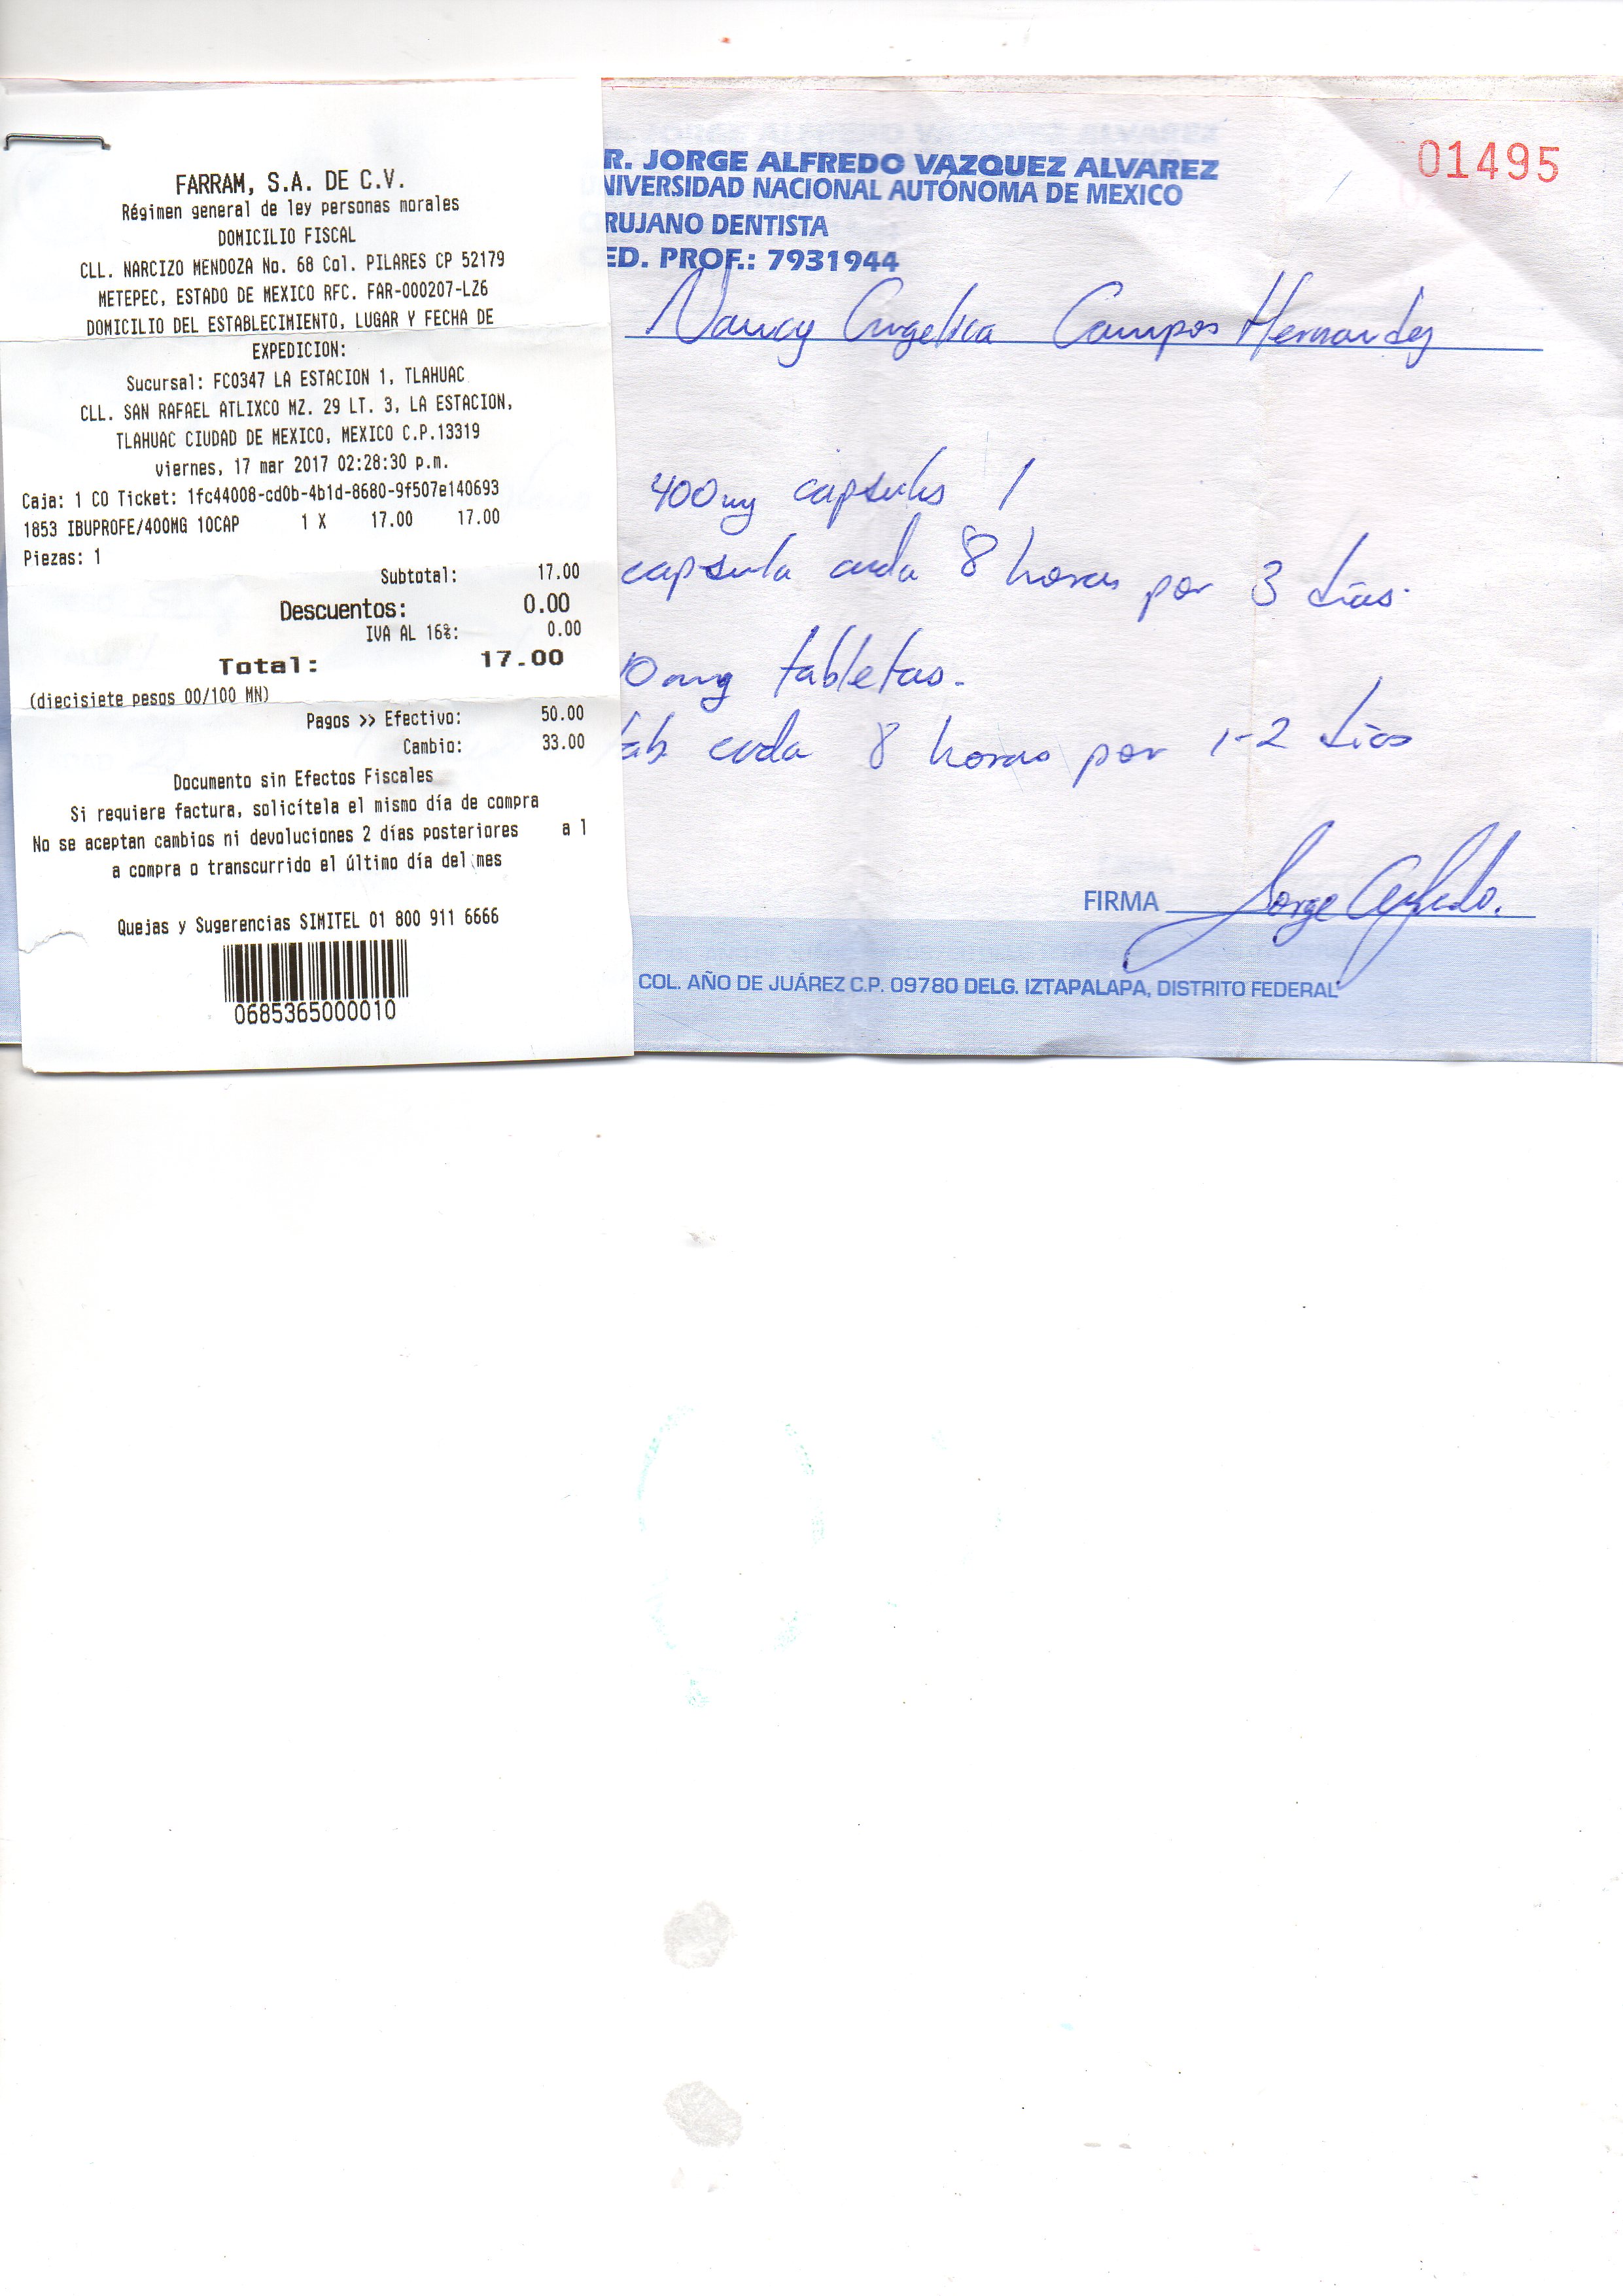 FARRAM, S.A. DE C.V.
Régimen general de ley personas morales
DOMICILIO FISCAL
CLL. NARCIZO MENDOZA No. 68 Col. PILARES CP 52179
METEPEC, ESTADO DE MEXICO RFC. FAR-000207-LZ6
DOMICILIO DEL ESTABLECIMIENTO, LUGAR Y FECHA DE
EXPEDICION:
Sucursal: FC0347 LA ESTACION 1, TLAHUAC
CLL. SAN RAFAEL ATLIXCO MZ. 29 LT. 3, LA ESTACION,
TLAHUAC CIUDAD DE MEXICO, MEXICO C.P.13319
viernes, 17 mar 2017 02:28:30 p.m.
Caja: 1 CO Ticket: 1fc44008-cd0b-4b1d-8680-9f507e140693
1853 IBUPROFE/400MG 10CAP 1 X 17.00 17.00
Piezas: 1
Subtotal: 17.00
Descuentos: 0.00
IVA AL 16%: 0.00
Total: 17.00
(diecisiete pesos 00/100 MN)
Pagos >> Efectivo: 50.00
Cambio: 33.00
Documento sin Efectos Fiscales
Si requiere factura, solicítela el mismo día de compra
No se aceptan cambios ni devoluciones 2 días posteriores a l
a compra o transcurrido el último día del mes
Quejas y Sugerencias SIMITEL 01 800 911 6666
0685365000010
R. JORGE ALFREDO VAZQUEZ ALVAREZ
NIVERSIDAD NACIONAL AUTÓNOMA DE MEXICO
RUJANO DENTISTA
ED. PROF.: 7931944
01495
Nancy Angelica Campos Hernandez
400mg capsulas 1
capsula cada 8 horas por 3 días.
0mg tabletas.
tab. cada 8 horas por 1-2 días
FIRMA Jorge Alfredo.
COL. AÑO DE JUÁREZ C.P. 09780 DELG. IZTAPALAPA, DISTRITO FEDERAL